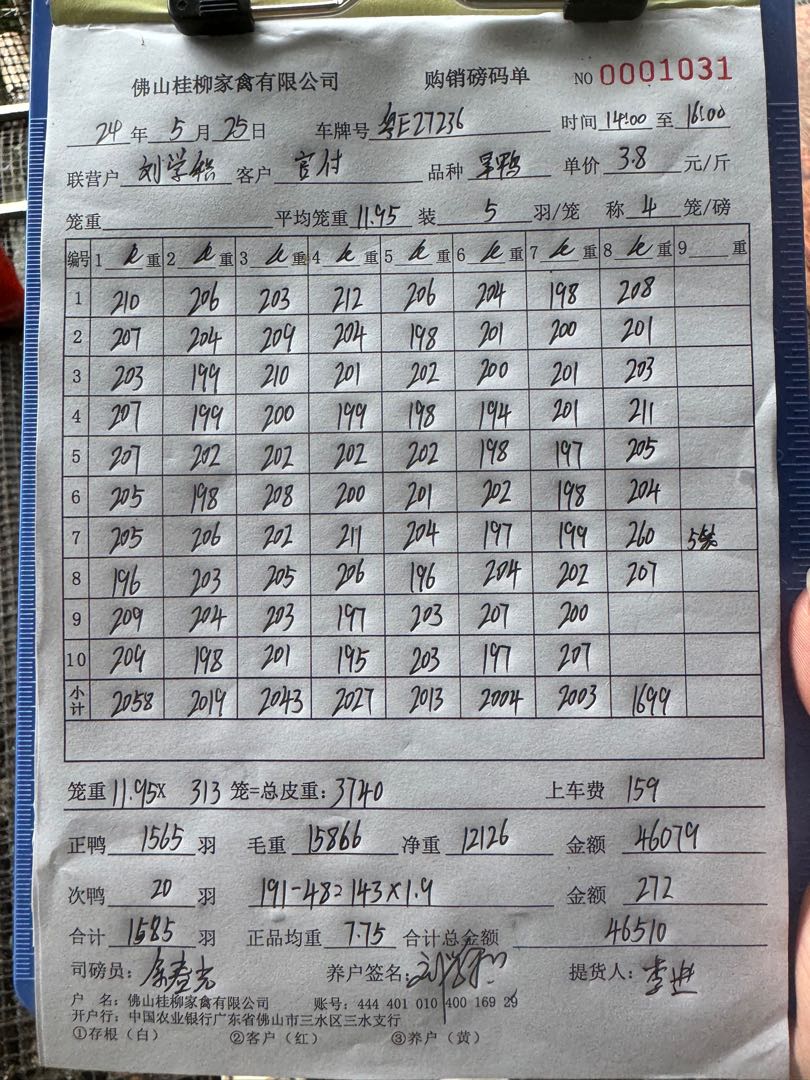 佛山桂柳家禽有限公司 购销磅码单 NO 0001031
24年5月25日 车牌号 粤E27236 时间 14:00 至 16:00
联营户 刘学稳 客户 官付 品种 旱鸭 单价 3.8 元/斤
笼重 平均笼重 11.95 装 5 羽/笼 称 4 笼/磅
编号 1 重 2 重 3 重 4 重 5 重 6 重 7 重 8 重 9 重
1 210 206 203 212 206 204 198 208
2 207 204 209 204 198 201 200 201
3 203 199 210 201 202 200 201 203
4 207 199 200 199 198 194 201 211
5 207 202 202 202 202 198 197 205
6 205 198 208 200 201 202 198 204
7 205 206 202 211 204 197 199 260 5笼
8 196 203 205 206 196 204 202 207
9 209 204 203 197 203 207 200
10 209 198 201 195 203 197 207
小计 2058 2019 2043 2027 2013 2004 2003 1699
笼重 11.95× 313 笼=总皮重: 3740 上车费 159
正鸭 1565 羽 毛重 15866 净重 12126 金额 46079
次鸭 20 羽 191-48=143×1.9 金额 272
合计 1585 羽 正品均重 7.75 合计总金额 46510
司磅员: 养户签名: 提货人: 李进
户 名: 佛山桂柳家禽有限公司 账号: 444 401 010 400 169 29
开户行: 中国农业银行广东省佛山市三水区三水支行
①存根（白） ②客户（红） ③养户（黄）